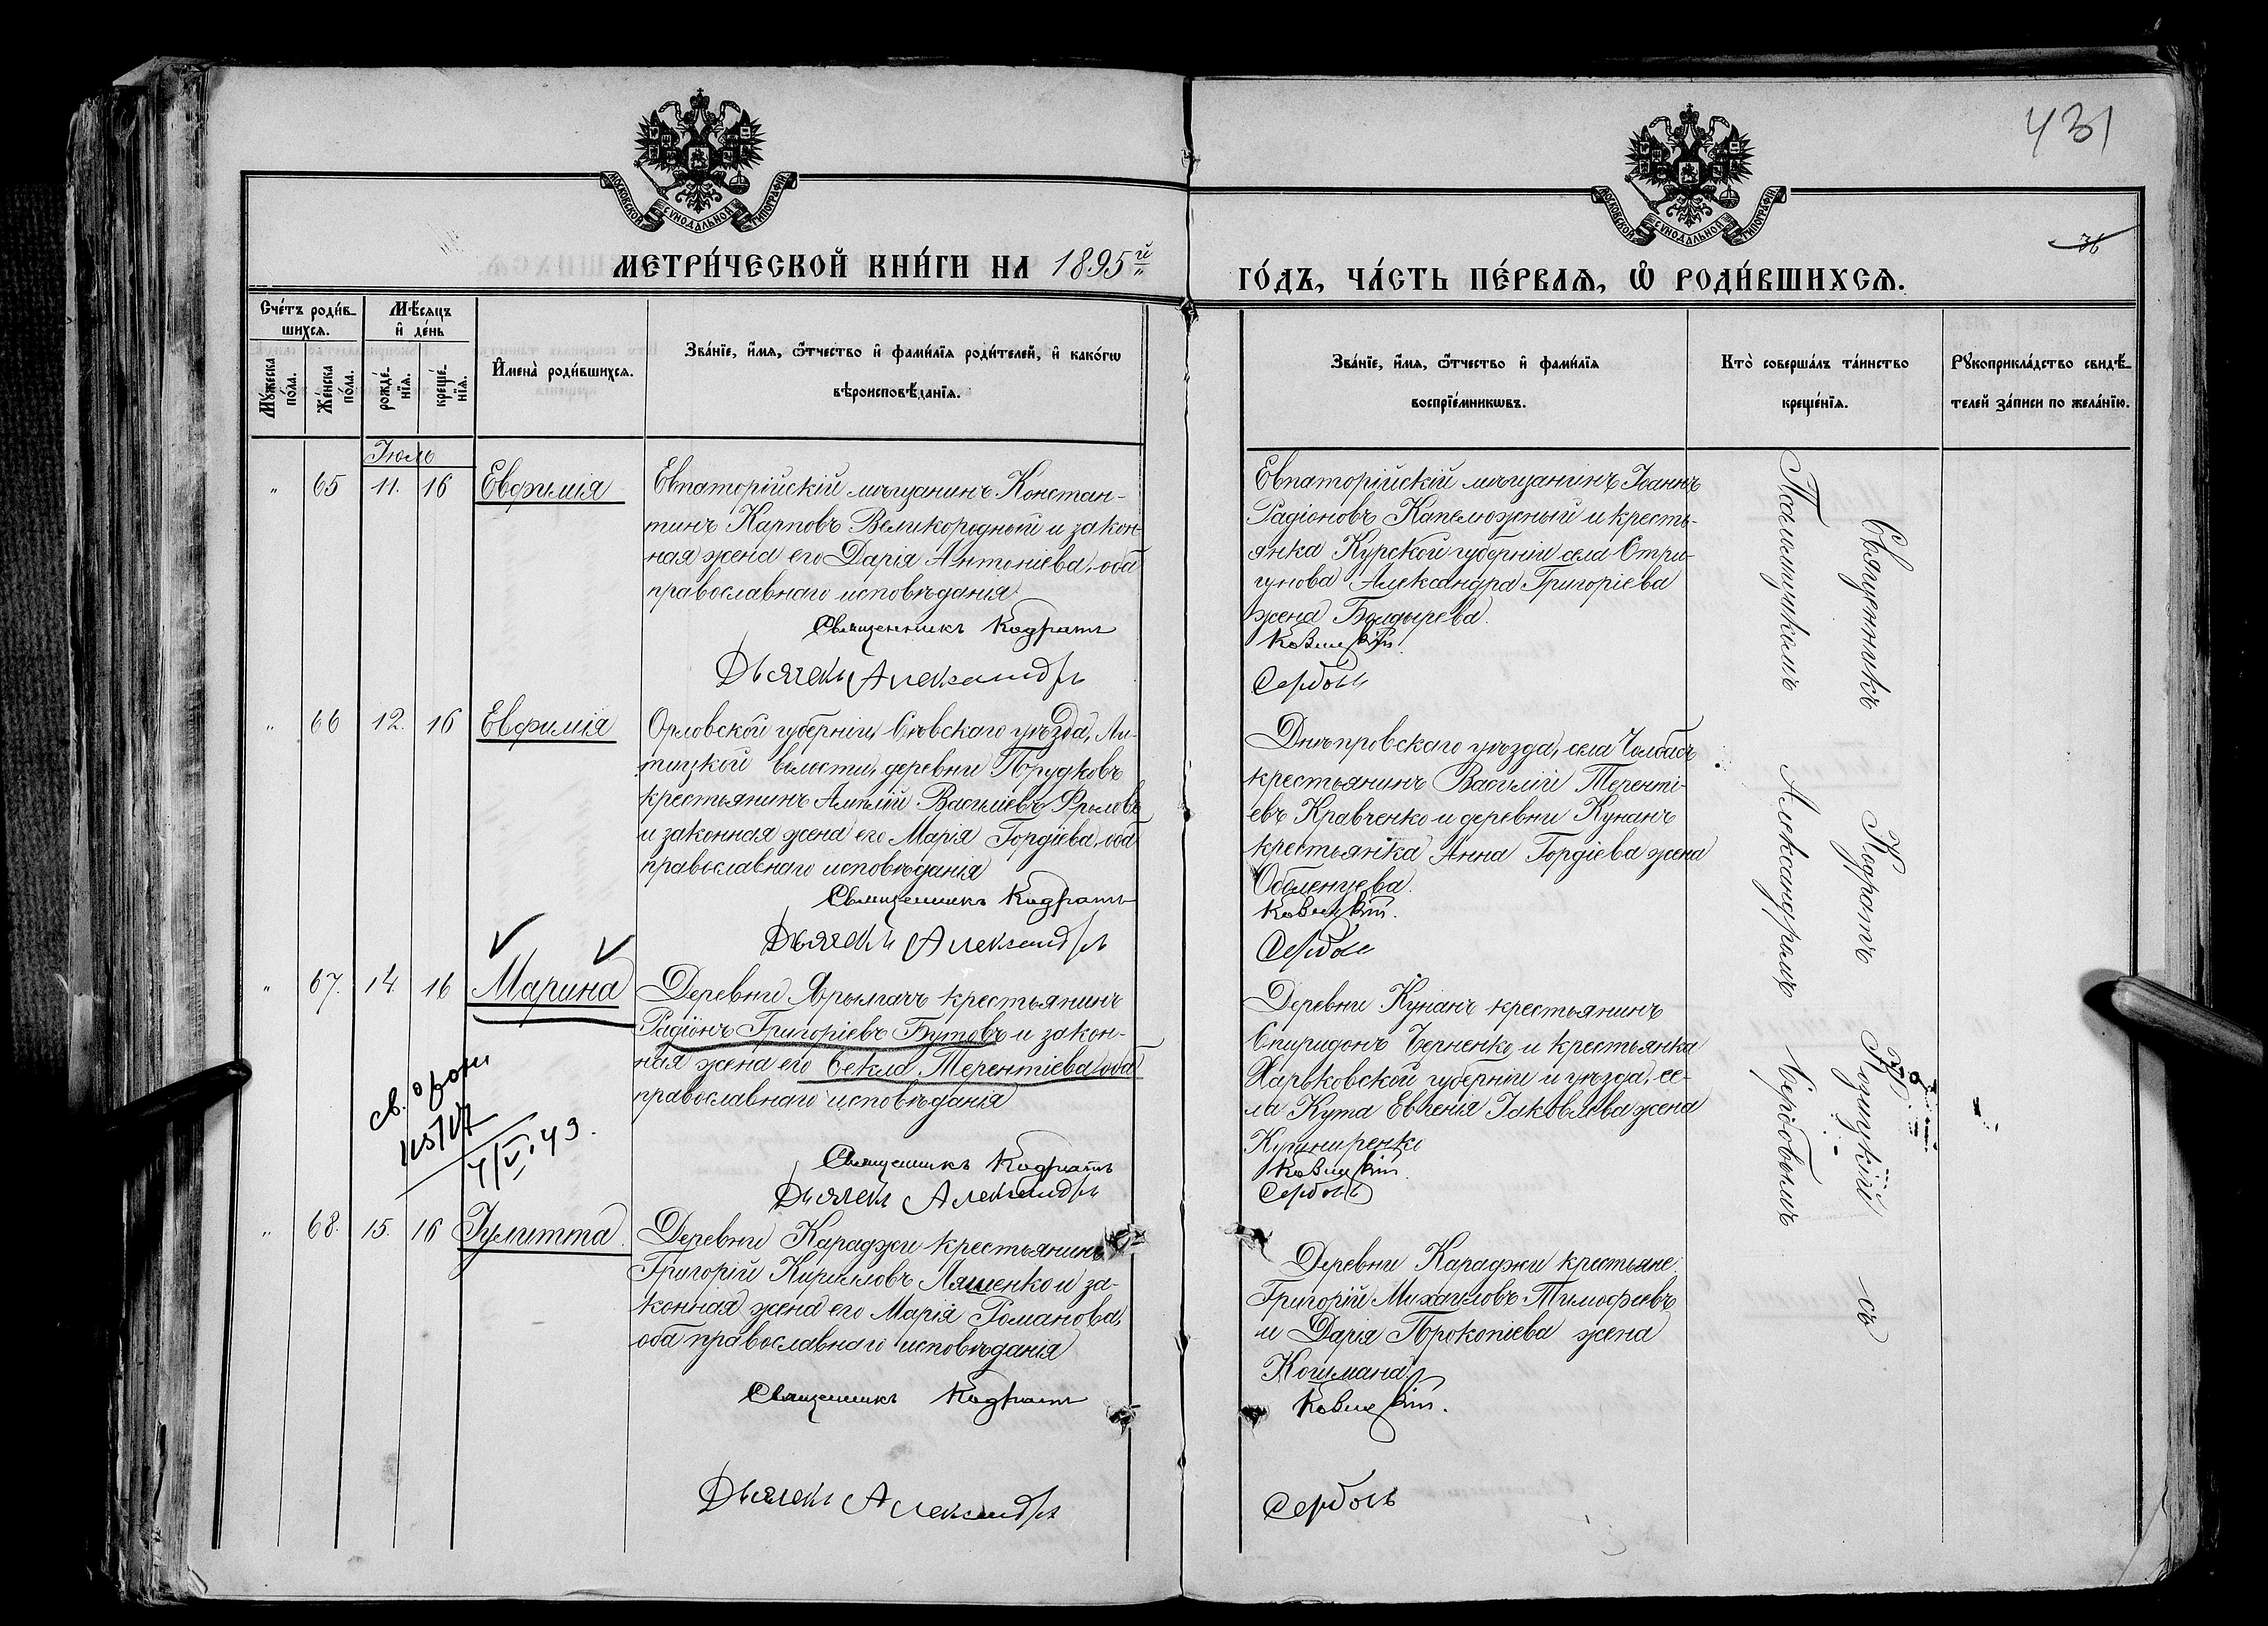 431
МОСКОВСКОЙ СУНОДАЛЬНОЙ ТИПОГРАФІИ
МОСКОВСКОЙ СУНОДАЛЬНОЙ ТИПОГРАФІИ
36
МЕТРИ́ЧЕСКОЙ КНИ́ГИ НА 1895й
ГО́ДЪ, ЧА́СТЬ ПЕ́РВАѦ, Ѡ РОДИ́ВШИХСѦ.
Сче́тъ роди́в-
шихсѧ.
Мꙋ́жеска
по́ла.
Же́нска
по́ла.
Мѣ́сѧцъ
и҆ де́нь
рожде́-
нїѧ.
креще́-
нїѧ.
И҆мена̀ роди́вшихсѧ.
Зва́нїе, и҆́мѧ, ѻ҆́тчество и҆ фами́лїѧ роди́телей, и҆ како́гѡ
вѣроисповѣ́данїѧ.
Зва́нїе, и҆́мѧ, ѻ҆́тчество и҆ фами́лїѧ
воспрїе́мникѡвъ.
Кто̀ соверша́лъ та́инство
креще́нїѧ.
Рꙋкоприкла́дство свидѣ́-
телей за́писи по жела́нїю.
Іюль
" 65 11. 16 Евфимія
Евпаторійскій мѣщанинъ Констан-
тинъ Карповъ Великородный и закон-
ная жена его Дарія Антоніева, оба
православнаго исповѣданія
Священникъ Кодратъ
Дьячекъ Александръ
Евпаторійскій мѣщанинъ Іоаннъ
Радіоновъ Капелюжный и кресть-
янка Курской губерніи села Стри-
гунова Александра Григоріева
жена Болдырева.
Сербовъ
" 66 12. 16 Евфимія
Орловской губерніи, Сѣвскаго уѣзда, Ли-
тицкой волости, деревни Прудковъ
крестьянинъ Василіевъ Фрыловъ
и законная жена его Марія Гордіева, оба
православнаго исповѣданія
Священникъ Кодратъ
Дьячекъ Александръ
Днѣпровскаго уѣзда, села Чолбасъ
крестьянинъ Василій Теренті-
евъ Кравченко и деревни Кунанъ
крестьянка Анна Гордіева жена
Оболенцева.
Сербовъ
" 67. 14 16 Марина
Деревни Ярылгачъ крестьянинъ
Радіонъ Григоріевъ Бутовъ и закон-
ная жена его Ѳекла Терентіева, оба
православнаго исповѣданія
Священникъ Кодратъ
Дьячекъ Александръ
Деревни Кунанъ крестьянинъ
Спиридонъ Черненко и крестьянка
Харьковской губерніи и уѣзда, се-
ла Кута Евгенія Іаковлева жена
Кушниренко
Сербовъ
" 68. 15. 16 Іулитта.
Деревни Караджи крестьянинъ
Григорій Кирилловъ Ляшенко и за-
конная жена его Марія Романова,
оба православнаго исповѣданія
Священникъ Кодратъ
Дьячекъ Александръ
Деревни Караджи крестьяне:
Григорій Михаиловъ Тимоѳеевъ
и Дарія Прокопіева жена
Кошмана.
Сербовъ
Священникъ Кодратъ съ
Псаломщикомъ Александромъ Сербовымъ